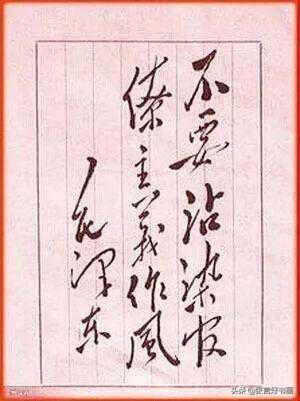 不要沾染官
僚主义作風
毛泽东
头条 @张富好书画